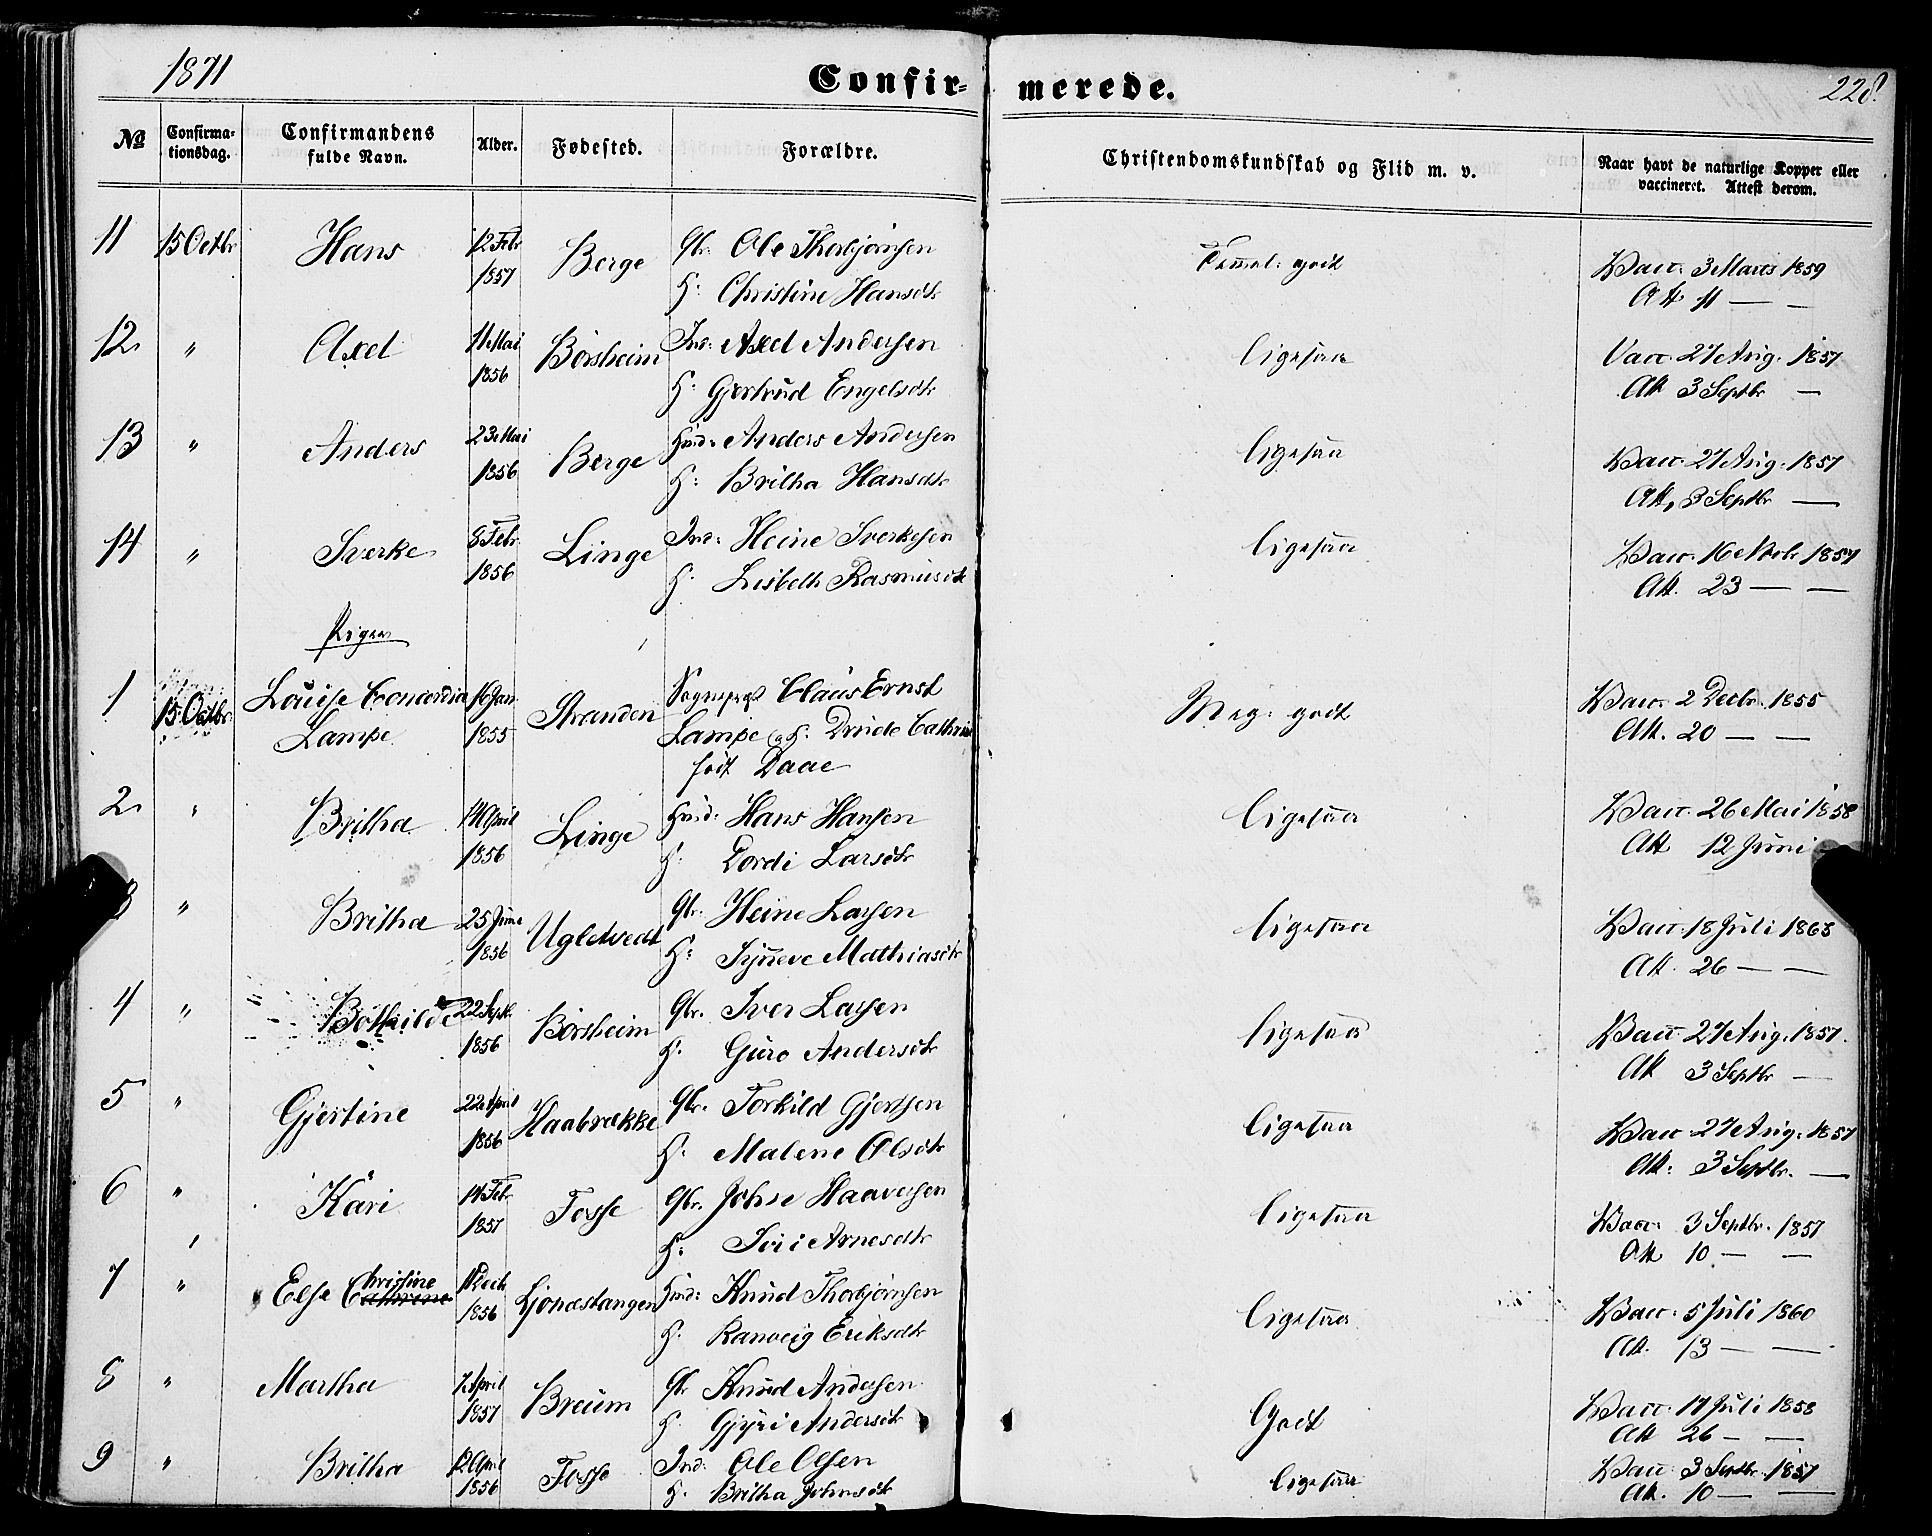 1871
Confirmerede.
228
№
Confirmationsdag.
Confirmandens fulde Navn.
Alder.
Fødested.
Forældre.
Christendomskundskab og Flid m. v.
Naar havt de naturlige Kopper eller vaccineret. Attest derom.
11 15 Octbr Hans 12 Febr 1857 Berge Gbr. Ole Thorbjörnsen Temmel: godt Vacc. 3 Marts 1859
H: Christine Hansdtr Att 11 — —
12 " Axel 11 Mai 1856 Börsheim Ind: Axel Andersen ligesaa Vacc. 27 Aug. 1857
H: Gjertrud Engelsdtr Att 3 Septbr —
13 " Anders 23 Mai 1856 Berge Huusm: Anders Andersen ligesaa Vacc. 27 Aug. 1857
H: Britha Hansdtr Att, 3 Septbr —
14 " Sverke 8 Febr 1856 Linge Ind: Heine Sverkesen ligesaa Vacc. 16 Novbr 1857
H: Lisbeth Rasmusdtr Att. 23 — —
Piger
1 15 Octbr. Louise Concordia 16 Jan 1855 Stranden Sognepræst Claus Ernst Meg: godt Vacc. 2 Decbr. 1855
Lampe Lampe og H: Drude Cathrine Att. 20 — —
født Daae
2 " Britha 14 April 1856 Linge Huusm: Hans Hansen ligesaa Vacc. 26 Mai 1858
H: Dordi Larsdtr Att 12 Juni —
3 " Britha 25 Juni 1856 Ugletvedt Gbr. Heine Larsen ligesaa Vacc. 18 Juli 1868
H: Synneve Mathiasdtr Att. 26 — —
4 " Bothilde 22 Sept. 1856 Börsheim Gbr. Iver Larsen ligesaa Vacc. 27 Aug. 1857.
H. Guro Andersdtr Att 3 Septbr —
5 " Gjertine 22 April 1856 Haabrekke Gbr. Torkild Gjertsen ligesaa Vacc. 27 Aug. 1857
H. Malene Olsdtr Att: 3 Septbr. —
6 " Kari 14 Febr 1857 Fosse Gbr. Johne Haaversen ligesaa Vacc: 3 Septbr. 1857
H: Siri Arnesdtr Att 10 — —
7 " Else Cathrine Christine Decb 1856 Ljonestangen Huusm: Knud Thorbjörnsen ligesaa Vacc: 5 Juli 1860
H. Ranveig Eriksdtr Att. 13 — —
8 " Martha 7 April 1857 Breum Gbr Knud Andersen Godt Vacc. 17 Juli 1858
H. Gyri Andersdtr Att 26 — —
9 " Britha 12 April 1856 Fosse Ind: Ole Olsen ligesaa Vacc 3 Septbr. 1857
H. Britha Johnsdtr Att. 10 — —